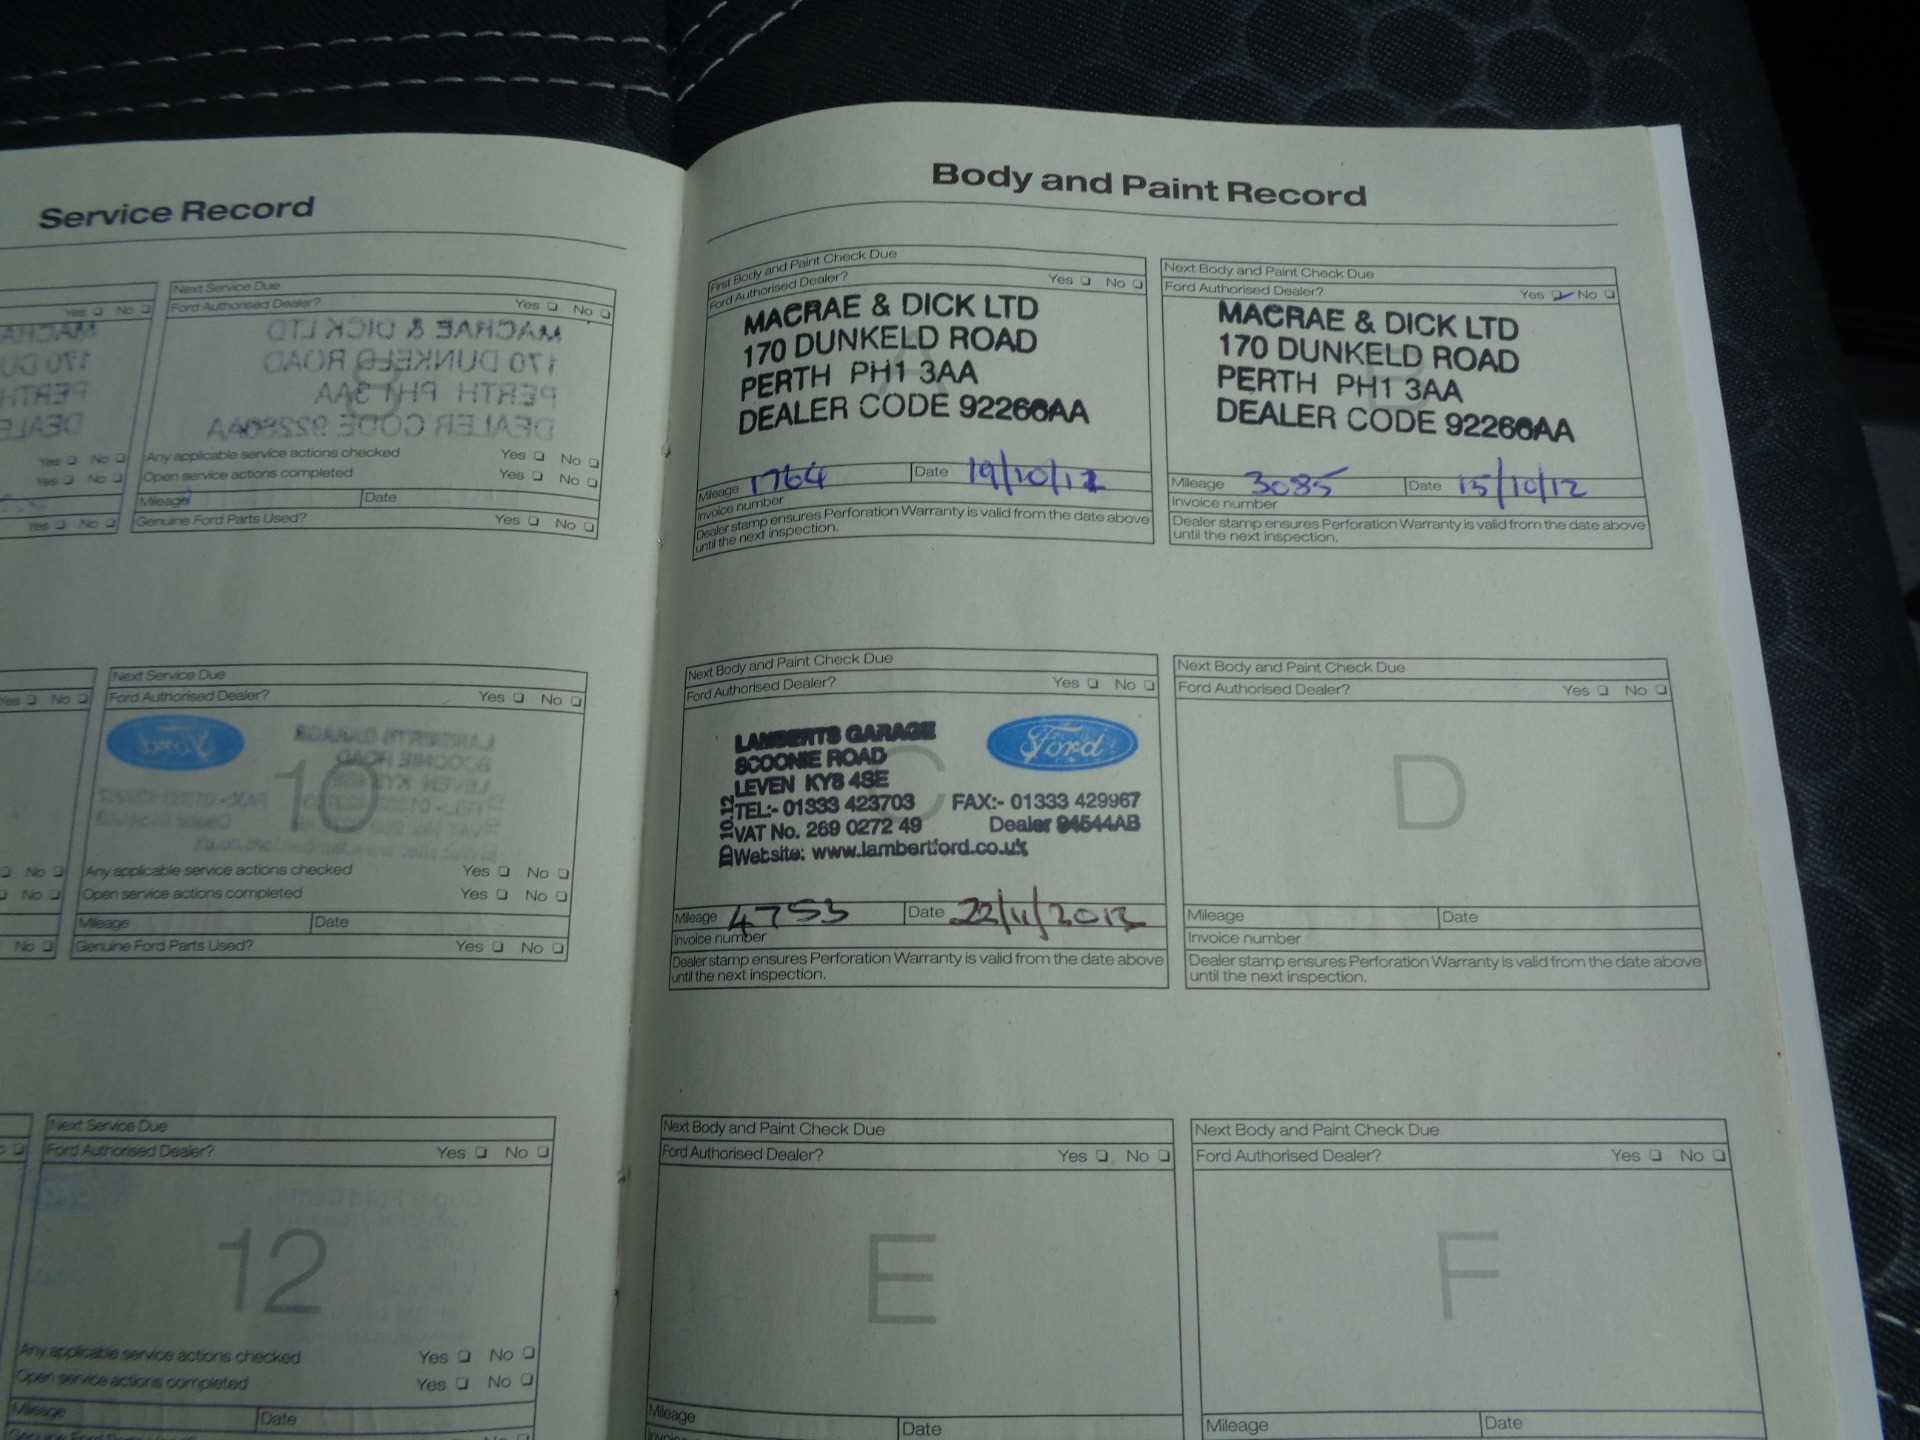 Service Record
Next Service Due
Ford Authorised Dealer? Yes No
Any applicable service actions checked Yes No
Open service actions completed Yes No
Mileage Date
Genuine Ford Parts Used? Yes No
Next Service Due
Ford Authorised Dealer? Yes No
10
Any applicable service actions checked Yes No
Open service actions completed Yes No
Mileage Date
Genuine Ford Parts Used? Yes No
Next Service Due
Ford Authorised Dealer? Yes No
12
Any applicable service actions checked Yes No
Open service actions completed Yes No
Mileage Date
Body and Paint Record
First Body and Paint Check Due
Ford Authorised Dealer? Yes No
MACRAE & DICK LTD
170 DUNKELD ROAD
PERTH PH1 3AA
DEALER CODE 92266AA
A
Mileage 1764 Date 19/10/12
Invoice number
Dealer stamp ensures Perforation Warranty is valid from the date above
until the next inspection.
Next Body and Paint Check Due
Ford Authorised Dealer? Yes No
MACRAE & DICK LTD
170 DUNKELD ROAD
PERTH PH1 3AA
DEALER CODE 92266AA
Mileage 3085 Date 15/10/12
Invoice number
Dealer stamp ensures Perforation Warranty is valid from the date above
until the next inspection.
Next Body and Paint Check Due
Ford Authorised Dealer? Yes No
LAMBERTS GARAGE
SCOONIE ROAD
LEVEN KY8 4SE
TEL:- 01333 423703 FAX:- 01333 429967
VAT No. 269 0272 49 Dealer 94544AB
Website: www.lambertford.co.uk
Ford
C
Mileage 4753 Date 22/11/2013
Invoice number
Dealer stamp ensures Perforation Warranty is valid from the date above
until the next inspection.
Next Body and Paint Check Due
Ford Authorised Dealer? Yes No
D
Mileage Date
Invoice number
Dealer stamp ensures Perforation Warranty is valid from the date above
until the next inspection.
Next Body and Paint Check Due
Ford Authorised Dealer? Yes No
E
Mileage Date
Next Body and Paint Check Due
Ford Authorised Dealer? Yes No
F
Mileage Date